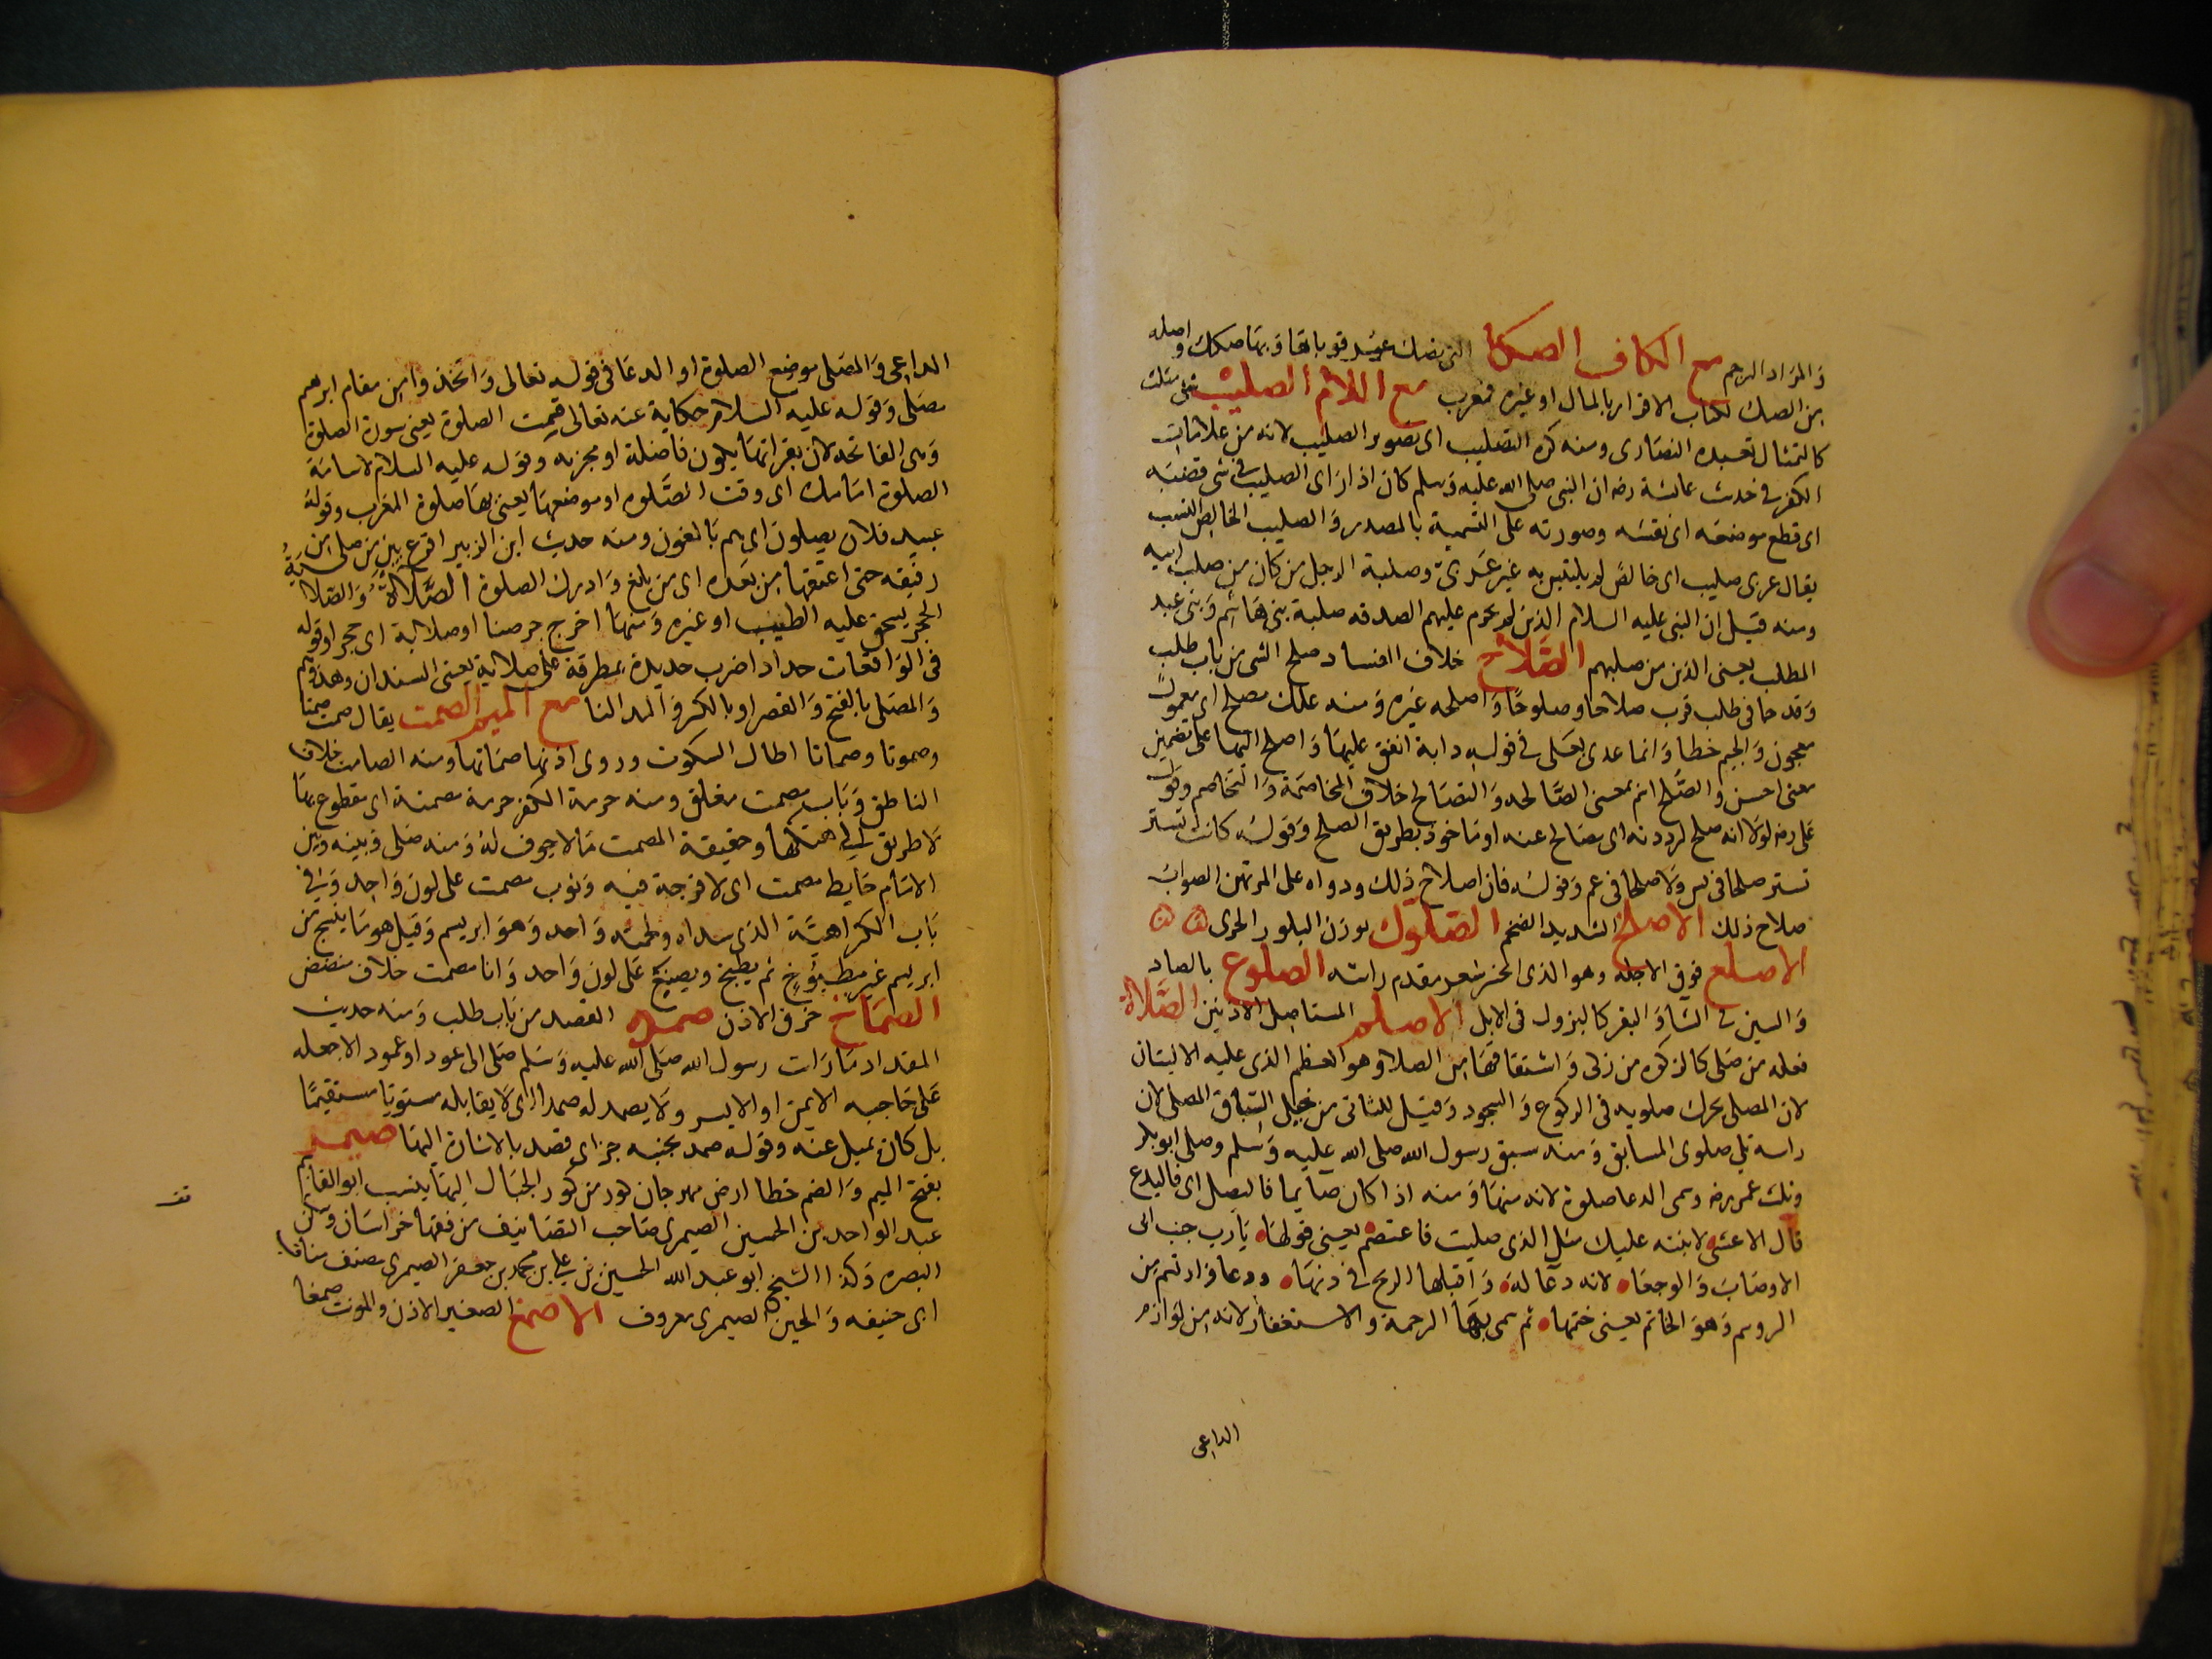 والمراد الرجم مع الكاف الصكا التى يضك عرقوباها وبها صكك واصله
من الصك لكتاب الاقرار بالمال او غيره فمعرب مع اللام الصليب شى مثلث
كالتمثال تعبده النصارى ومنه كره التصليب اى تصوير الصليب لانه من علامات
الكفر فى حديث عائشة رضه ان النبى صلى الله عليه وسلم كان اذا راى الصليب فى شى قضبه
اى قطع موضعه اى نقشه وصورته على التسمية بالمصدر والصليب الخالص النسب
يقال عربى صليب اى خالص لم يلتبس به غير عربى وصلبة الرجل من كان من صلب ابيه
ومنه قيل ان النبى عليه السلام الذين تحرم عليهم الصدقه صلبة بنى هاشم وبنى عبد
المطلب يعنى الذين من صلبهم الصلاح خلاف الفساد صلح الشى من باب طلب
وقد جا فى طلب قرب صلاحا وصلوحا واصلحه غيره ومنه علك مصلح اى معمول
معجون والجيم خطا وانما عدى بعلى فى قوله دابة انفق عليها واصلح اليها على تضمين
معنى احسن والصلح اسم بمعنى المصالحه والتصالح خلاف المخاصمة والتخاصم وقول
على رضه لولا انه صلح لرددته اى مصالح عنه او ماخوذ بطريق الصلح وقوله كانت تستر
تستر صلحا فى يس ولا صلحا فى عم وقوله فان اصلاح ذلك ودواه على المرتهن الصواب
صلاح ذلك الاصلخ الشديد الضخم الصلوك بوزن البلور الجرى
الاصلع فوق الاجله وهو الذى انحسر شعر مقدم راسه الصلوع بالصاد
والسين فى الشا والبقر كالبزول فى الابل الاصلم المستاصل الاذنين الصلاة
فعله من صلى كالزكوة من زكى واشتقاقها من الصلا وهو العظم الذى عليه الاليتان
لان المصلى يحرك صلويه فى الركوع والسجود وقيل للثانى من خيل السباق المصلى لان
راسه يلى صلوى السابق ومنه سبق رسول الله صلى الله عليه وسلم وصلى ابو بكر
وثلث عمر رضه وسمى الدعا صلوة لانه منها ومنه اذا كان صايما فاليصل اى فاليدع
قال الاعشى لابنته عليك مثل الذى صليت فاعتصم يعنى قولها يا رب جنب ابى
الاوصاب والوجعا لانه دعا له واقبلها الريح فى دنها ودعا وارتسم من
الروسم وهو الخاتم يعنى ختمها ثم سمى بها الرحمة والاستغفار لانه من لوازم
الداعى
الداعى والمصلى موضع الصلوة او الدعا فى قوله تعالى واتخذوا من مقام ابرهيم
مصلى وقوله عليه السلام حكاية عنه تعالى قسمت الصلوة يعنى سورة الصلوة
وهى الفاتحه لان بقراتها يكون فاضلة او مجزيه وقوله عليه السلام لاسامة
الصلوة امامك اى وقت الصلوه او موضعها يعنى بها صلوة المغرب وقوله
عبيد فلان يصلون اى هم بالغون ومنه حديث ابن الزبير اقرع بين من صلى من
رقيقه حتى اعتقها من بعده اى من بلغ وادرك الصلوة الصلاة والصلاية
الحجر يسحق عليه الطيب او غيره ومنها اخرج جرصنا او صلاية اى حجرا وقوله
فى الواقعات حداد اضرب حديدة بمطرقة على صلاية يعنى السندان وهذا وهم
والمصلى بالفتح والقصر او بالكسر والمد النا مع الميم الصمت يقال صمت صمتا
وصموتا وصماتا اطال السكوت وروى اذنها صماتها ومنه الصامت خلاف
الناطق وباب مصمت مغلق ومنه حرمة الكفر حرمة مصمتة اى مقطوع بها
لا طريق الى هتكها وحقيقة المصمت ما لا جوف له ومنه صلى وبينه وبين
الامام حايط مصمت اى لا فرجة فيه وثوب مصمت على لون واحد وفى
باب الكراهية الذى سداه ولحمته واحد وهو ابريسم وقيل هو ما ينسج من
ابريسم غير مطبوخ ثم يطبخ ويصبغ على لون واحد وانا مصمت خلاف مفضض
الصماخ خرق الاذن صمد القصد من باب طلب ومنه حديث
المقداد ما رايت رسول الله صلى الله عليه وسلم صلى الى عود او عمود الا جعله
على حاجبه الايمن او الايسر ولا يصمد له صمدا اى لا يقابله مستويا مستقيما
بل كان يميل عنه وقوله صمد بجنبه جزاى قصد بالاشارة اليها صيمر
بفتح الميم والضم خطا ارض مهرجان كور من كور الجبال اليها ينسب ابو القاسم
عبد الواحد بن الحسين الصيمرى صاحب التصانيف من فقها خراسان وسكن
البصره وكذا الشيخ ابو عبد الله الحسين بن على بن محمد بن جعفر الصيمرى مصنف مناقب
ابى حنيفه والجبن الصيمرى معروف الاصمع الصغير الاذن والمونث صمعا